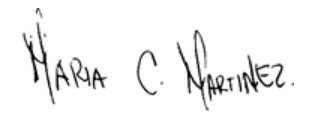 MARIA C. MARTINEZ.